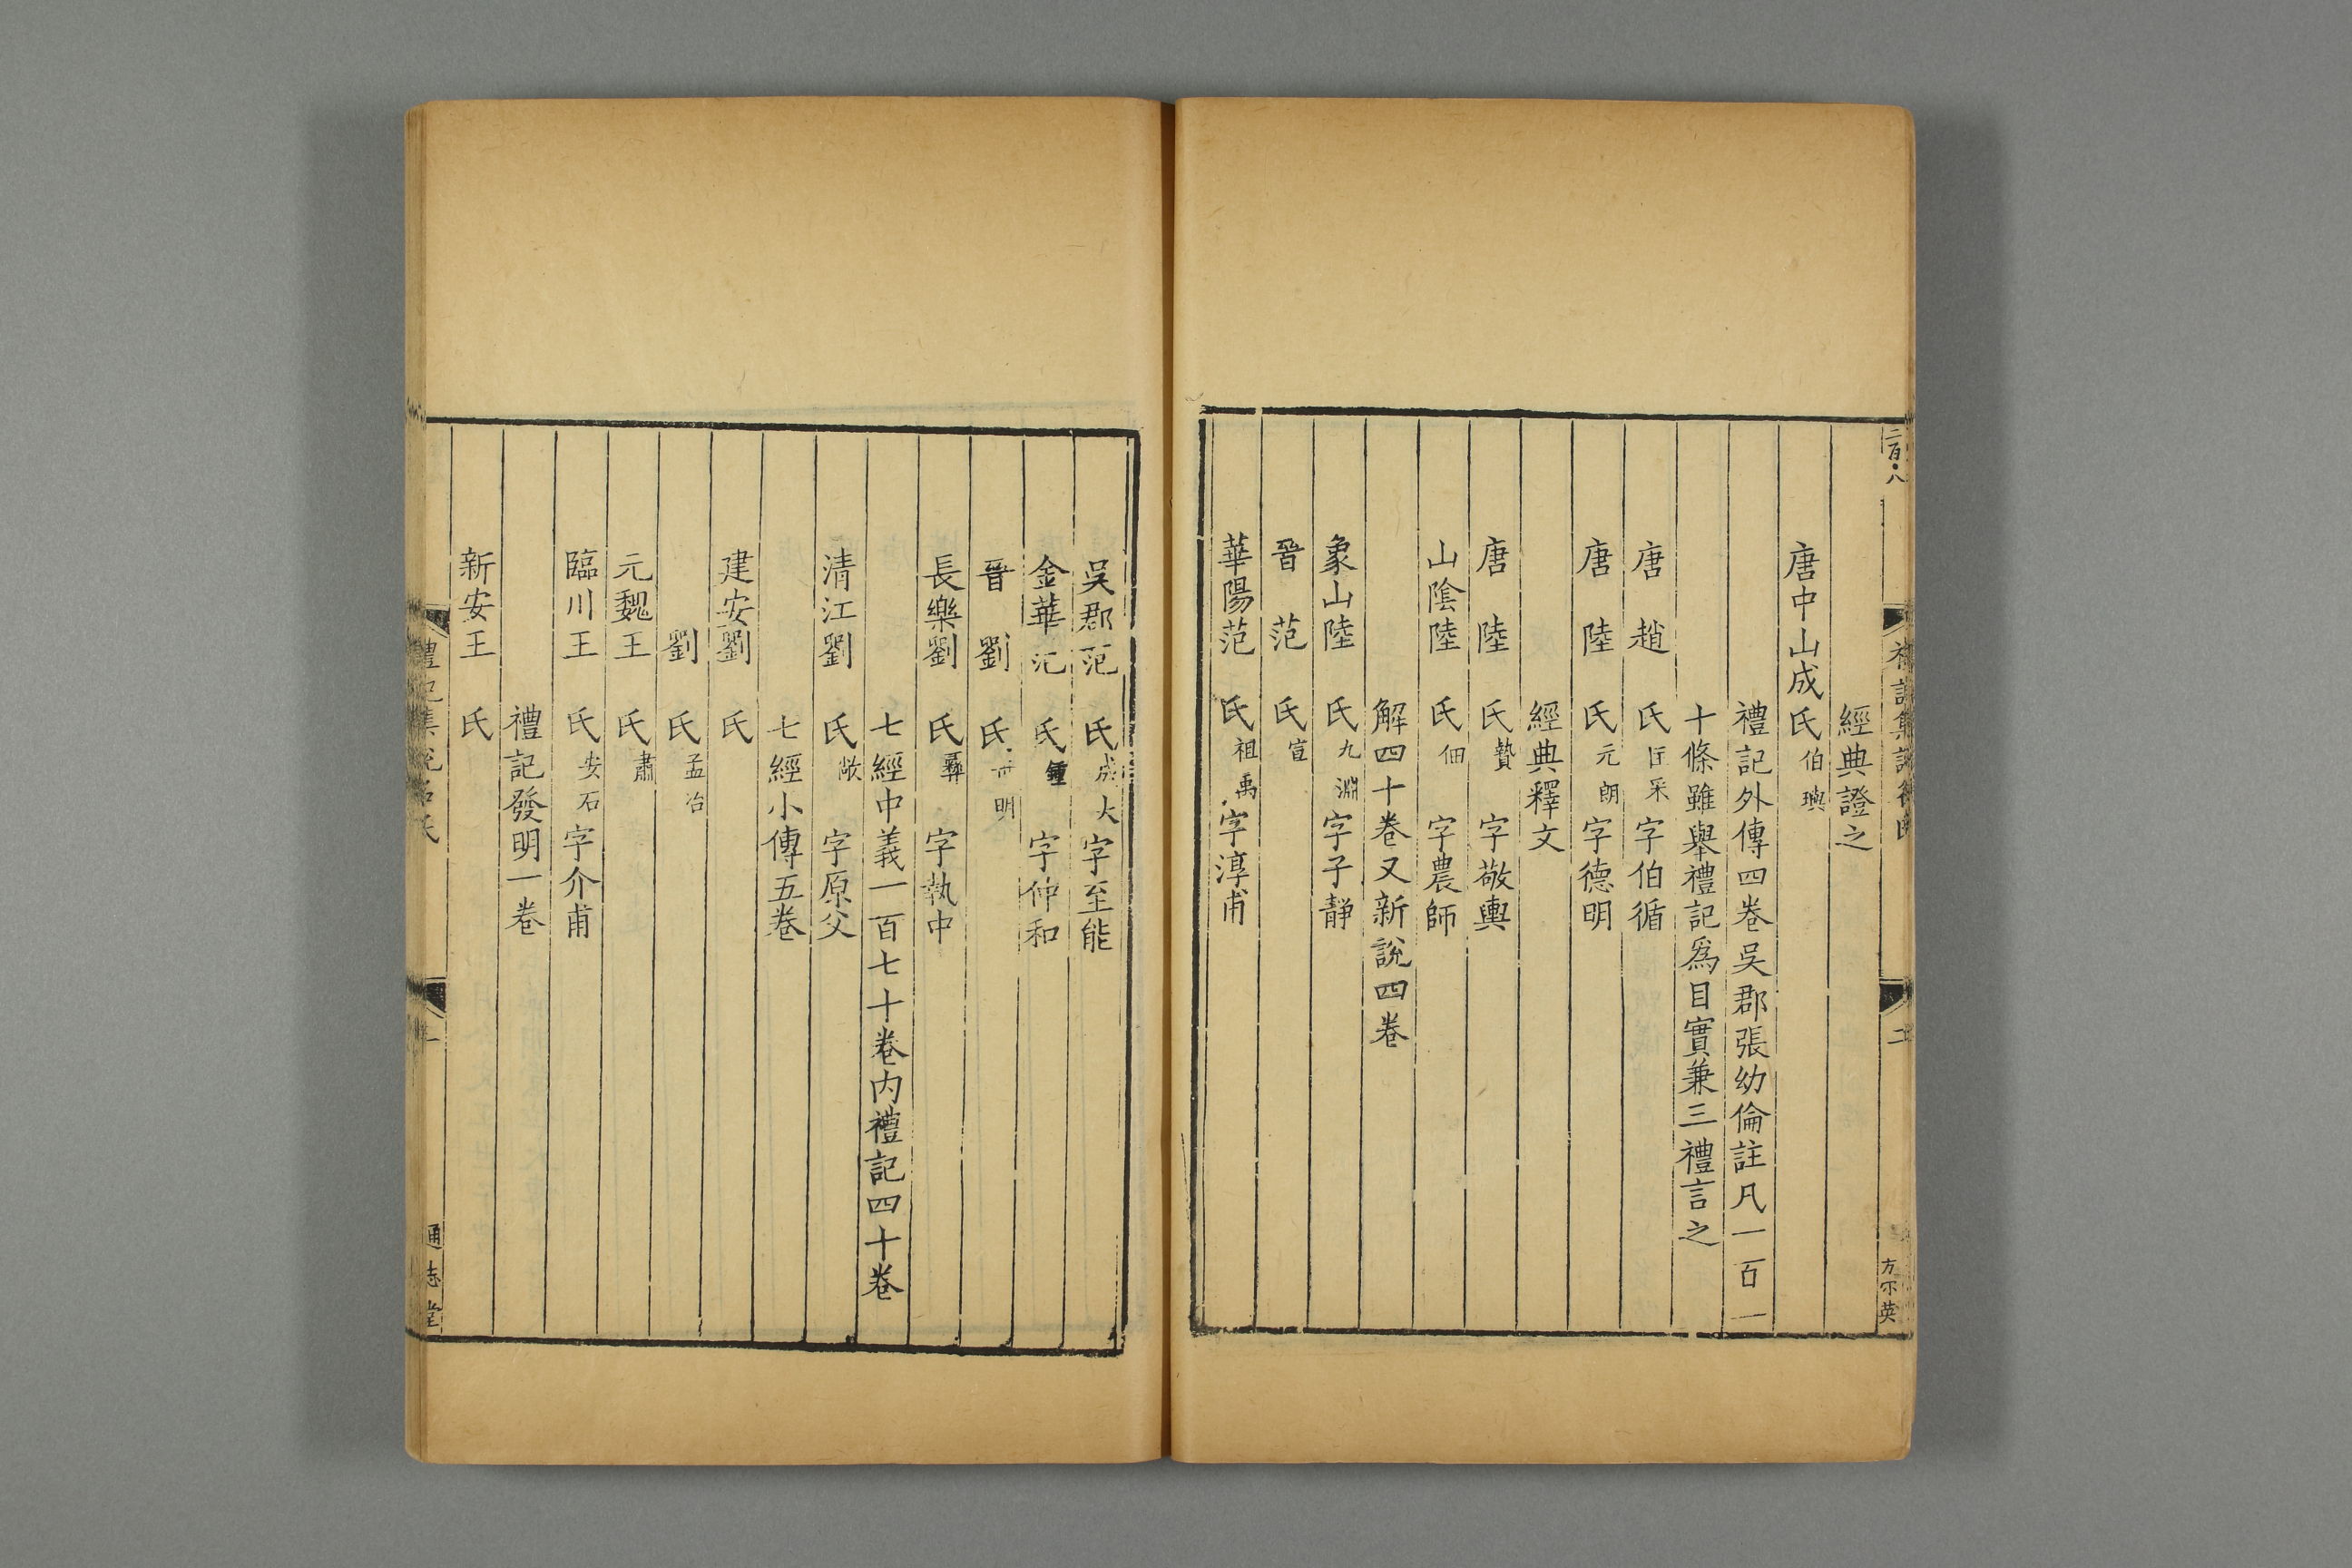 經典證之
唐中山成氏伯璵
禮記外傳四卷吳郡張幼倫註凡一百一
十條雖舉禮記爲目實兼三禮言之
唐趙氏匡采字伯循
唐陸氏元朗字德明
經典釋文
唐陸氏贄字敬輿
山陰陸氏佃字農師
解四十卷又新說四卷
象山陸氏九淵字子靜
晉范氏宣
華陽范氏祖禹字淳甫
二百八
二
方不英
吳郡范氏成大字至能
金華范氏鍾字仲和
晉劉氏明
長樂劉氏彝字執中
七經中義一百七十卷内禮記四十卷
清江劉氏敞字原父
七經小傳五卷
建安劉氏
劉氏孟冶
元魏王氏肅
臨川王氏安石字介甫
禮記發明一卷
新安王氏
禮記集說名氏
通志堂